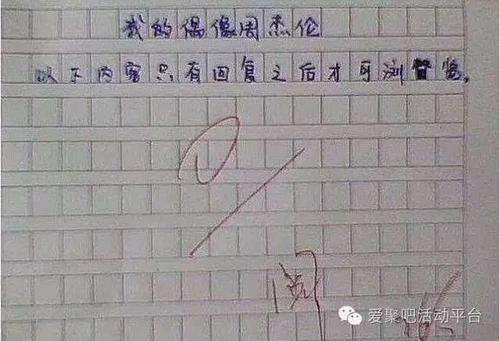 我的偶像周杰伦
以下内容只有回复之后才可浏览。
阅
爱聚吧活动平台